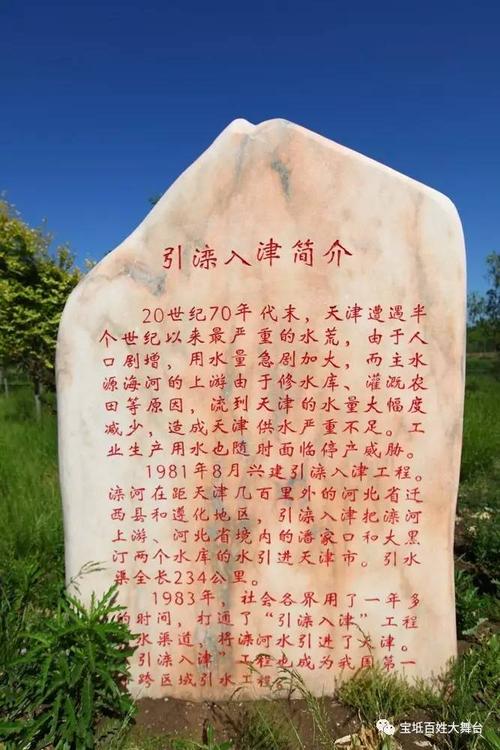 引滦入津简介
20世纪70年代末，天津遭遇半
个世纪以来最严重的水荒，由于人
口剧增，用水量急剧加大，而主水
源海河的上游由于修水库、灌溉农
田等原因，流到天津的水量大幅度
减少，造成天津供水严重不足。工
业生产用水也随时面临停产威胁。
1981年8月兴建引滦入津工程。
滦河在距天津几百里外的河北省迁
西县和遵化地区，引滦入津把滦河
上游、河北省境内的潘家口和大黑
汀两个水库的水引进天津市。引水
渠全长234公里。
1983年，社会各界用了一年多
的时间，打通了“引滦入津”工程
水渠道，将滦河水引进了天津。
引滦入津”工程也成为我国第一
跨区域引水工程
宝坻百姓大舞台